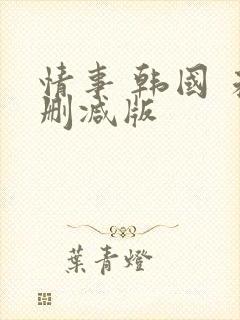 情事 韩国 
删减版
葉青燈